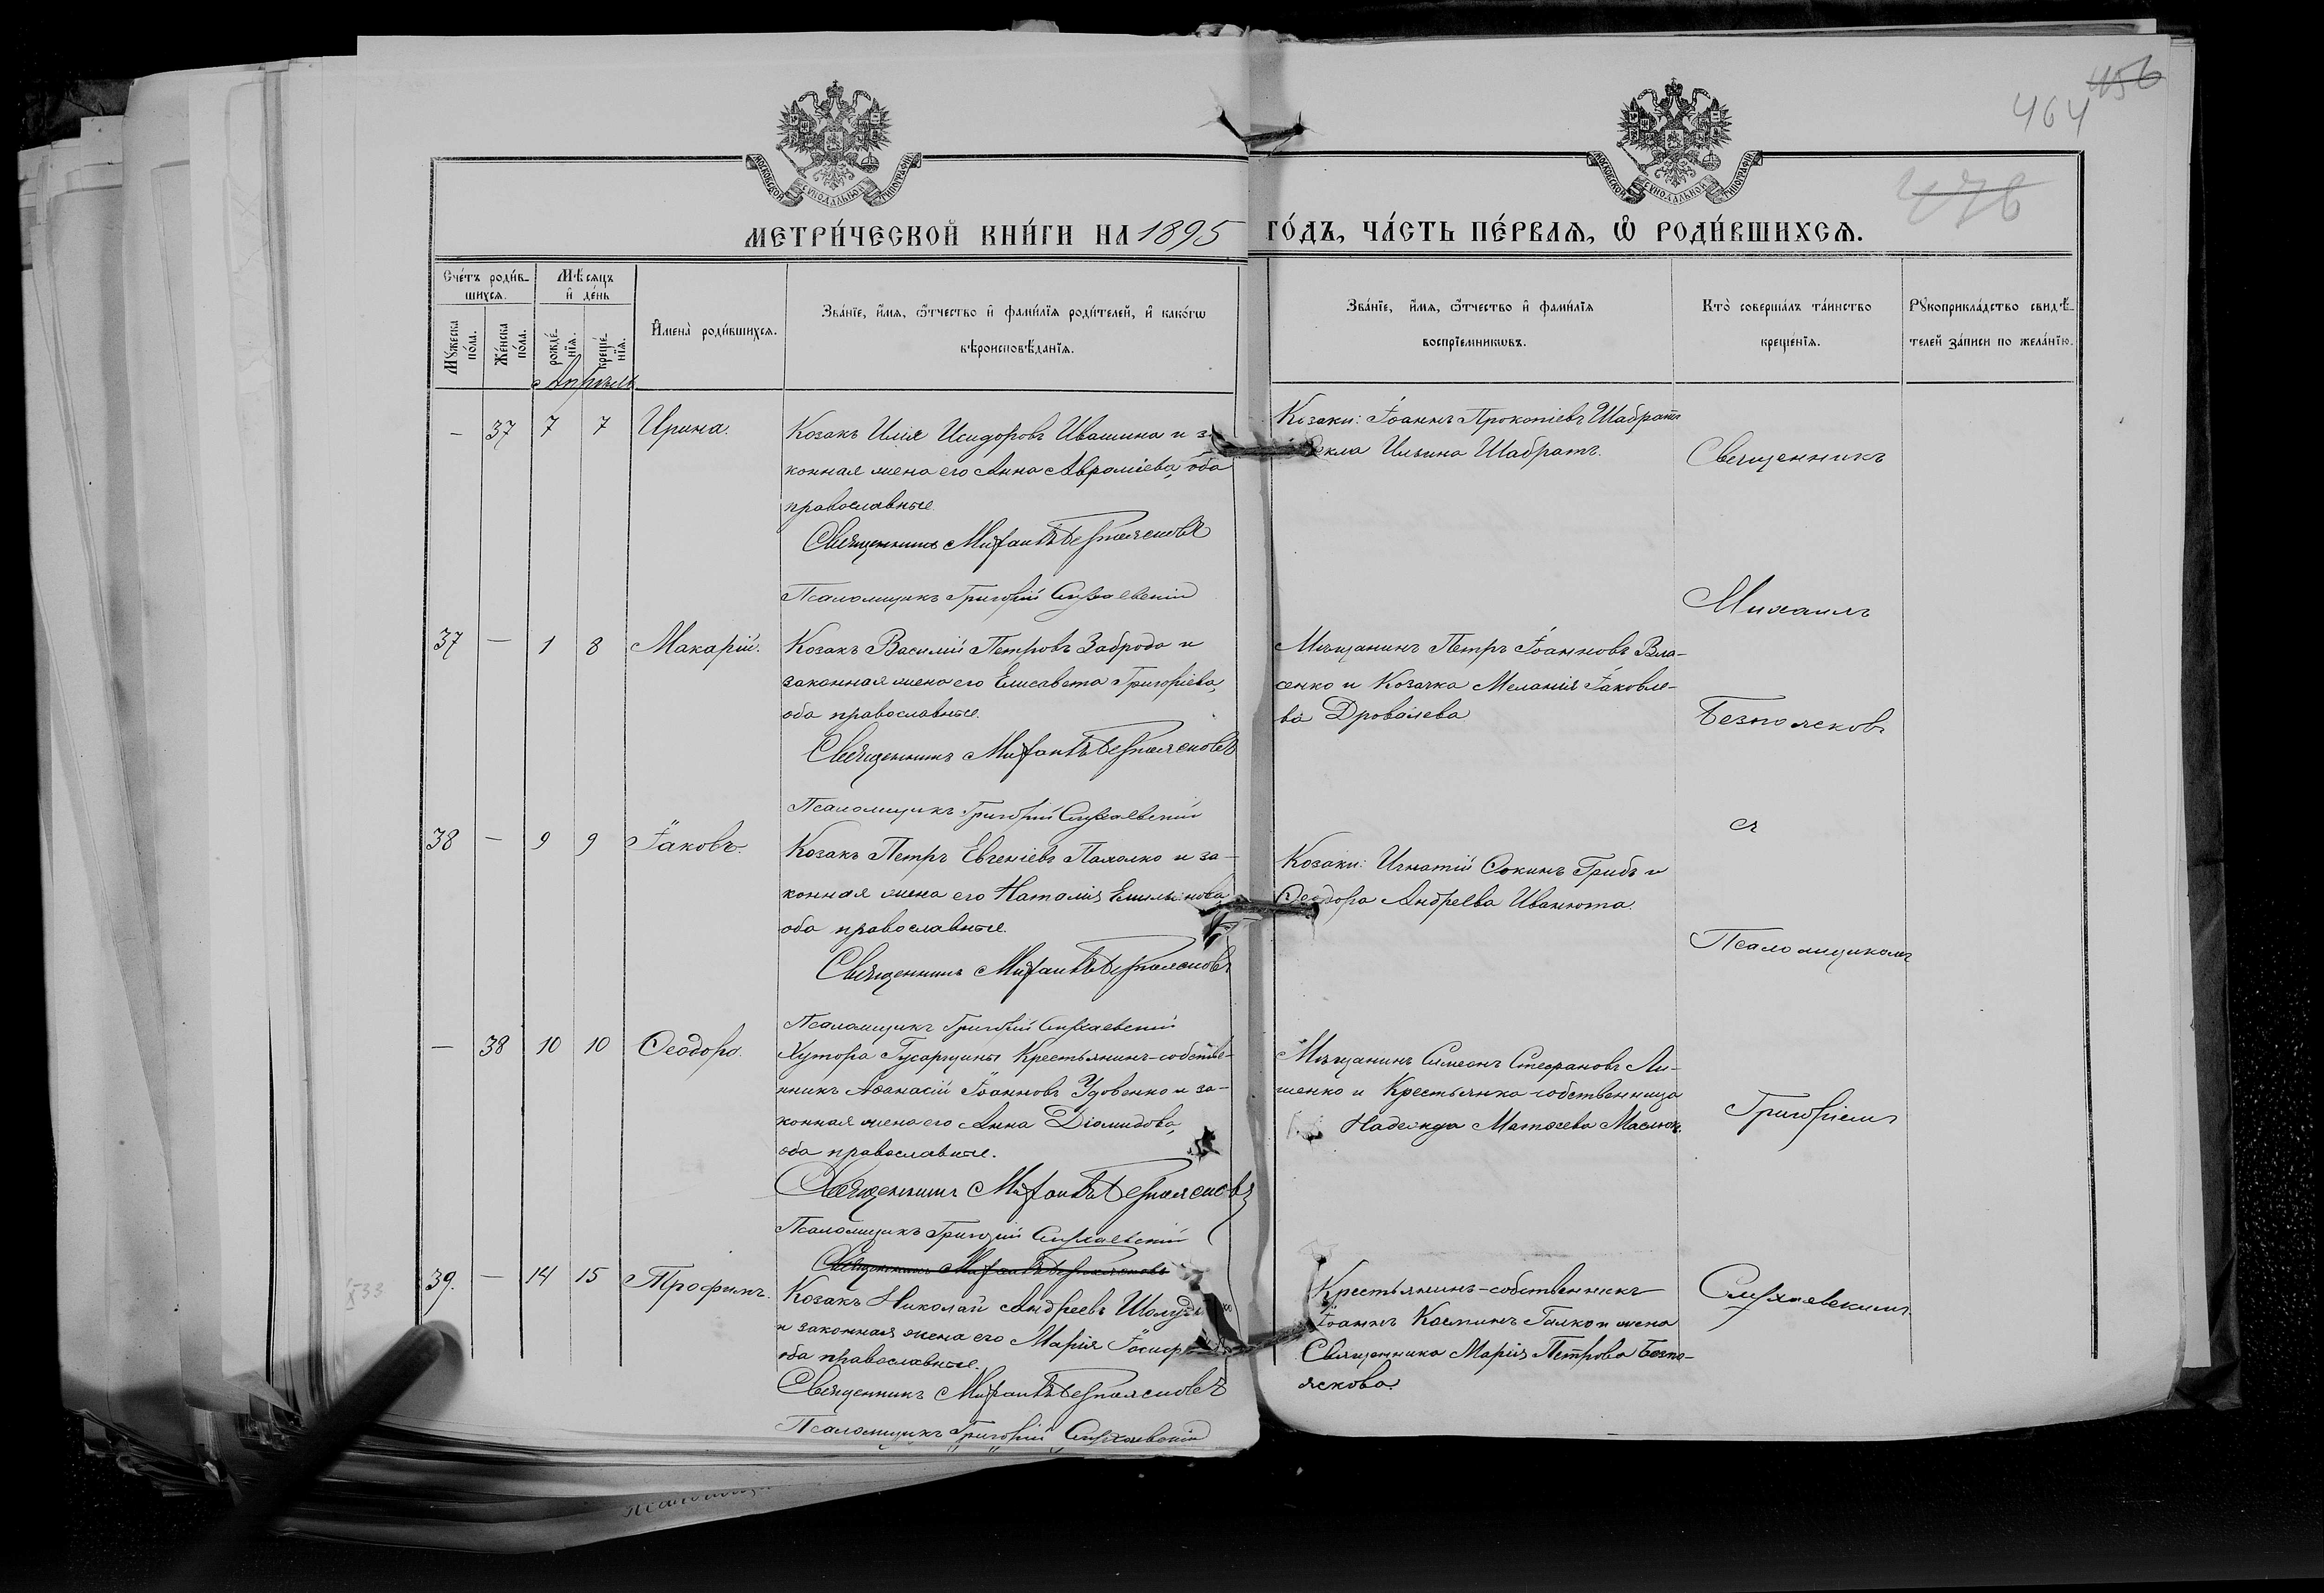 456
464
476
МОСКОВСКОЙ СУНОДАЛЬНОЙ ТИПОГРАФІИ
МОСКОВСКОЙ СУНОДАЛЬНОЙ ТИПОГРАФІИ
МЕТРИ́ЧЕСКОЙ КНИ́ГИ НА 1895 ГО́ДЪ, ЧА́СТЬ ПЕ́РВАѦ, Ѽ РОДИ́ВШИХСѦ.
Сче́тъ роди́в-
шихсѧ.
Мꙋ́жеска
по́ла.
Же́нска
по́ла.
Мѣ́сѧцъ
и҆ де́нь
рожде́-
нїѧ.
креще́-
нїѧ.
И҆мена̀ роди́вшихсѧ.
Зва́нїе, и҆́мѧ, ѻ҆́тчество и҆ фами́лїѧ роди́телей, и҆ како́гѡ
вѣроисповѣ́данїѧ.
Зва́нїе, и҆́мѧ, ѻ҆́тчество и҆ фами́лїѧ
воспрїе́мникѡвъ.
Кто̀ соверша́лъ та́инство
креще́нїѧ.
Рꙋкоприкла́дство свидѣ́-
телей за́писи по жела́нїю.
Апрѣль
— 37 7 7 Ирина.
Козакъ Илія Исидоровъ Ивашина и за-
конная жена его Анна Авраміева, оба
православные.
Священникъ Михаилъ Безпоясковъ
Псаломщикъ Григорій Слухаевскій
Козаки: Іоаннъ Прокопіевъ Шабратъ
Ильина Шабратъ.
37 — 1 8 Макарій.
Козакъ Василій Петровъ Заброда и
законная жена его Елисавета Григоріева,
оба православные.
Священникъ Михаилъ Безпоясковъ
Псаломщикъ Григорій Слухаевскій
Мѣщанинъ Петръ Іоанновъ Вла-
сенко и Козачка Меланія Іаковле-
ва Дровалева
38 — 9 9 Іаковъ.
Козакъ Петръ Евгеніевъ Палалко и за-
конная жена его Наталія Емильянова
оба православные.
Священникъ Михаилъ Безпоясковъ
Псаломщикъ Григорій Слухаевскій
Козаки: Игнатій Ѳокинъ Грибъ и
Ѳеодора Андреева Иванюта.
— 38 10 10 Ѳеодора.
Хутора Гусарщины Крестьянинъ-собстве-
нникъ Аѳанасій Іоанновъ Удовенко и за-
конная жена его Анна Діомидова,
оба православные.
Священникъ Михаилъ Безпоясковъ
Псаломщикъ Григорій Слухаевскій
Священникъ Михаилъ Безпоясковъ
Мѣщанинъ Симеонъ Стефановъ Ли-
шенко и Крестьянка-собственница
Надежда Матѳеева Маслюк.
39. — 14 15 Трофимъ.
Козакъ Николай Андреевъ
и законная жена его Марія
оба православные.
Священникъ Михаилъ Безпоясковъ
Псаломщикъ Григорій Слухаевскій
Крестьянинъ-собственникъ
Іоаннъ Косминъ Галко и жена
Священника Марія Петрова Безпо-
яскова.
Священникъ
Михаилъ
Безпоясковъ
съ
Псаломщикомъ
Григоріемъ
Слухаевскимъ.